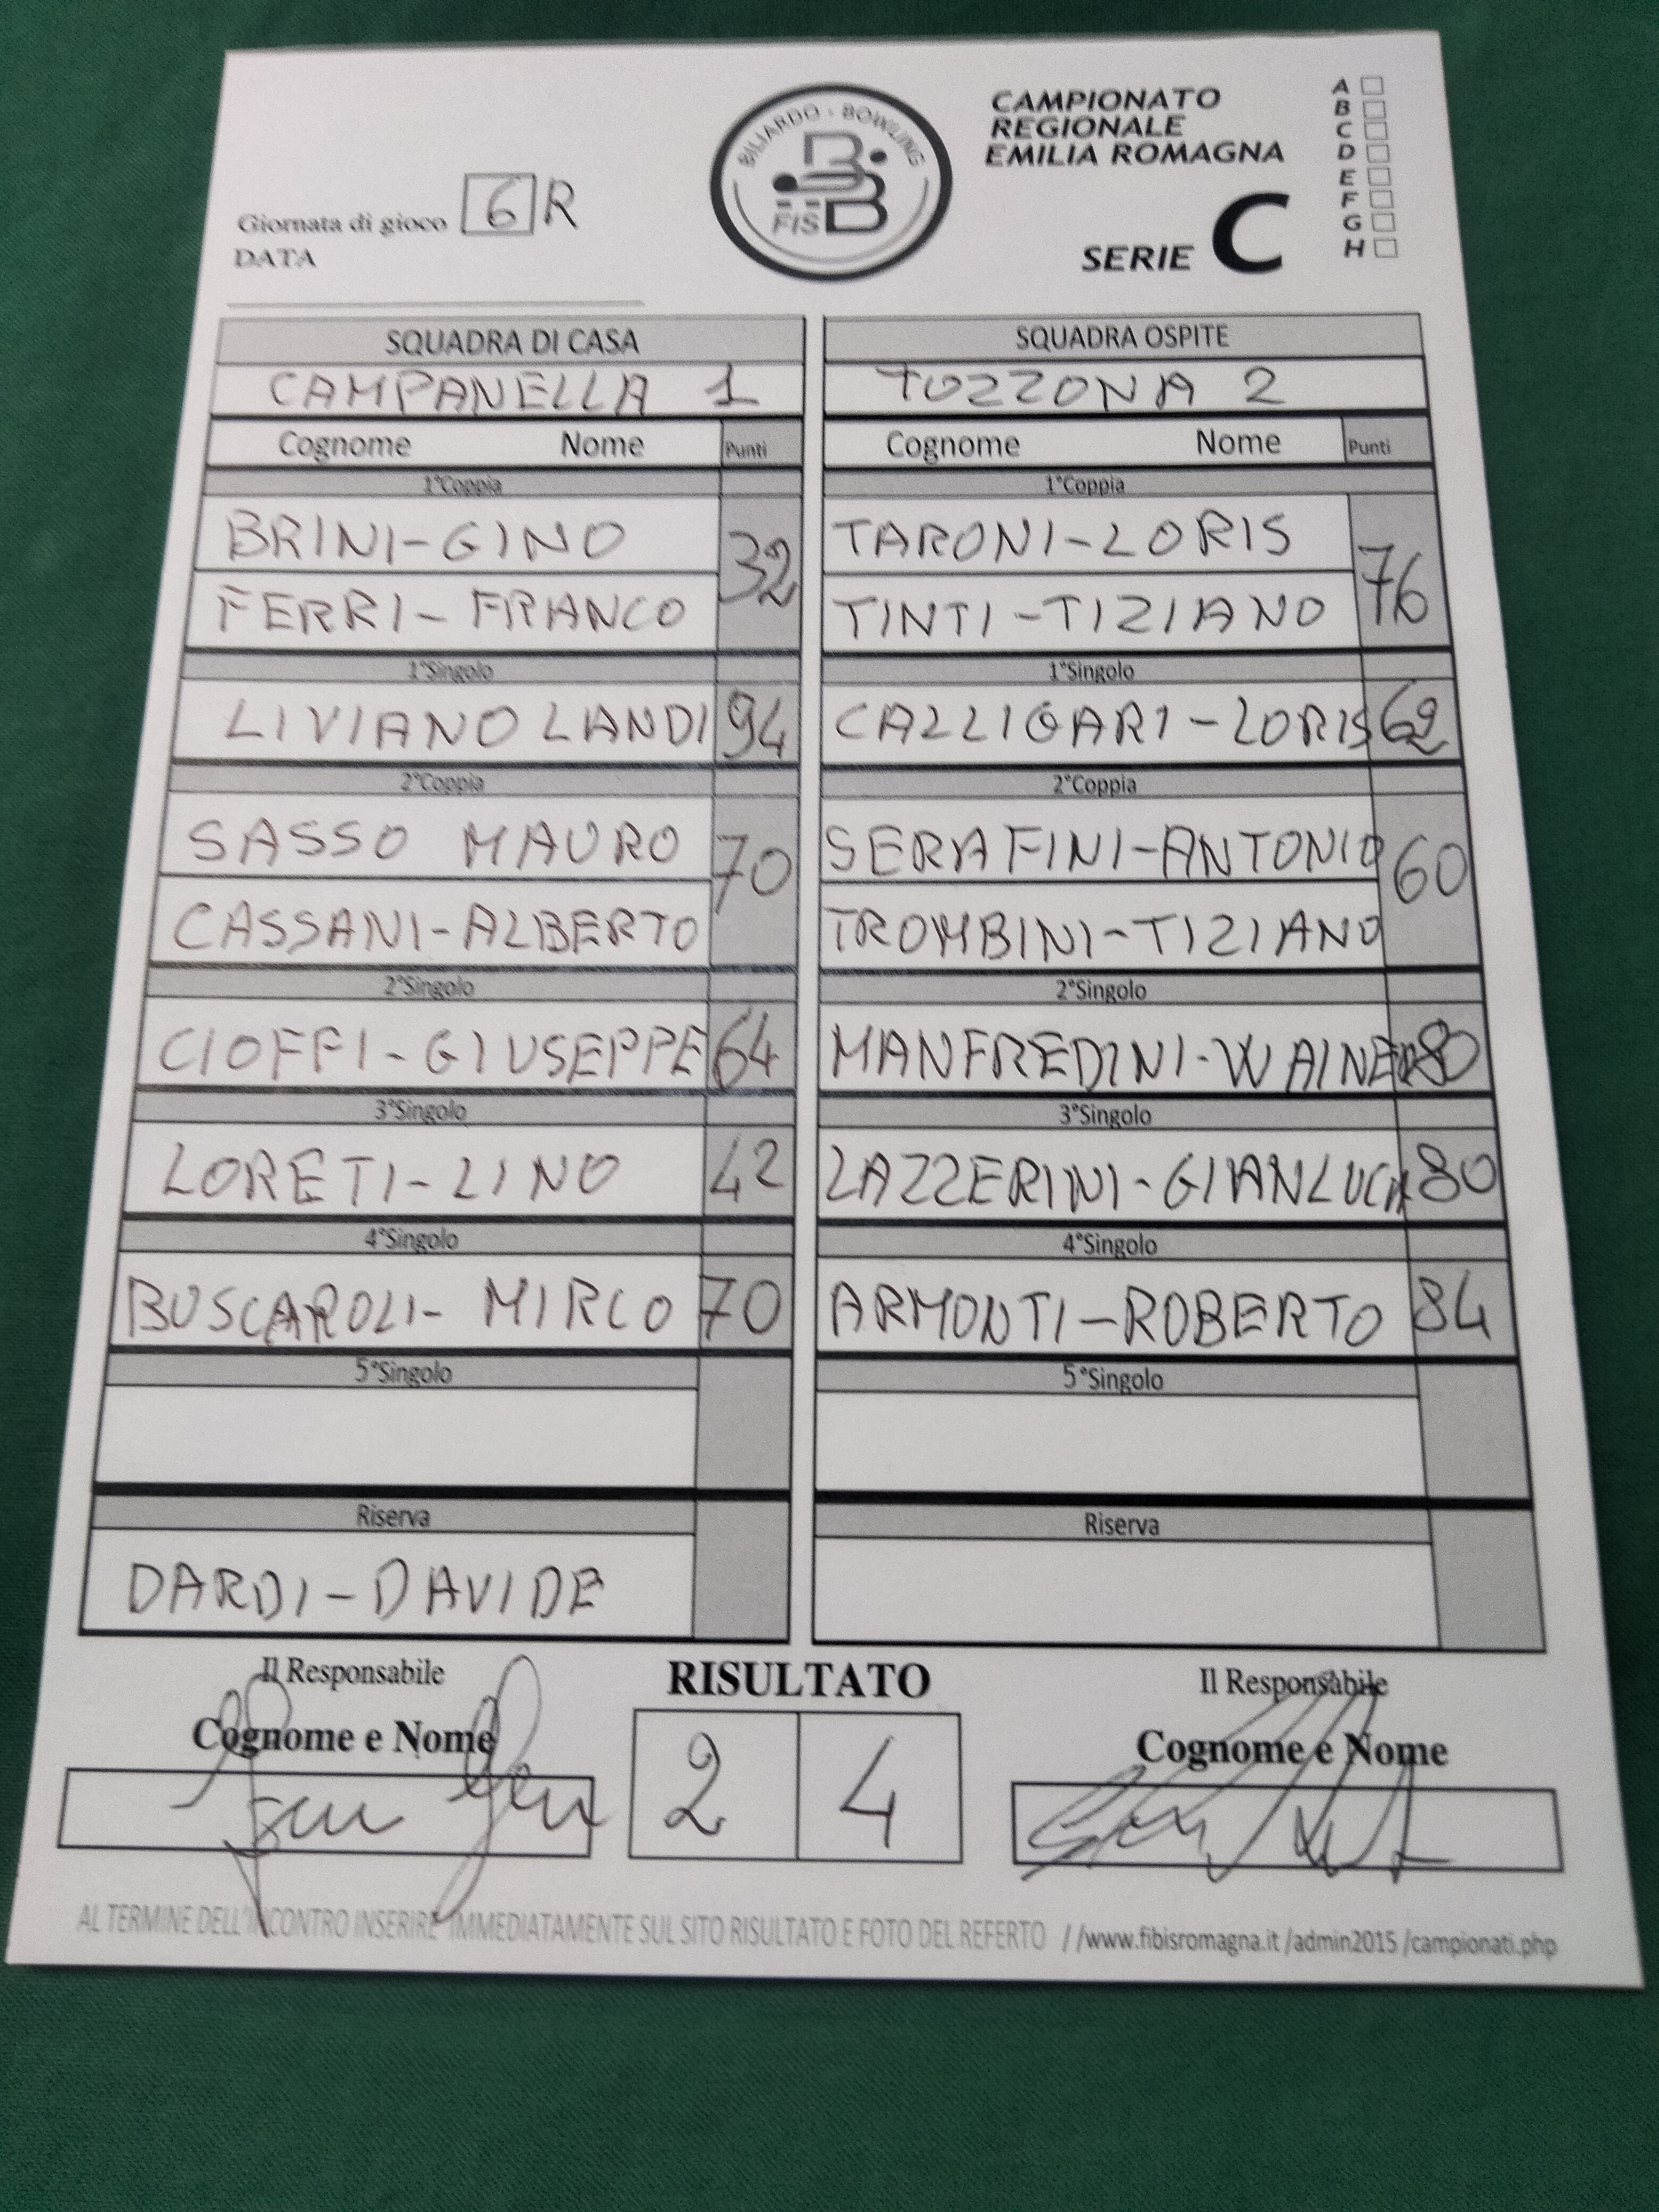 BILIARDO - BOWLING
FISBB
CAMPIONATO
REGIONALE
EMILIA ROMAGNA
SERIE C
A
B
C
D
E
F
G
H
Giornata di gioco 6 R
DATA
SQUADRA DI CASA
CAMPANELLA 1
Cognome Nome Punti
1°Coppia
BRINI-GINO 32
FERRI-FRANCO
1°Singolo
LIVIANO LANDI 94
2°Coppia
SASSO MAURO 70
CASSANI-ALBERTO
2°Singolo
CIOFFI-GIUSEPPE 64
3°Singolo
LORETI-LINO 42
4°Singolo
BUSCAROLI-MIRCO 70
5°Singolo
Riserva
DARDI-DAVIDE
SQUADRA OSPITE
TOZZONA 2
Cognome Nome Punti
1°Coppia
TARONI-LORIS 76
TINTI-TIZIANO
1°Singolo
CALLIGARI-LORIS 62
2°Coppia
SERAFINI-ANTONIO 60
TROMBINI-TIZIANO
2°Singolo
MANFREDINI-WAINER 80
3°Singolo
LAZZERINI-GIANLUCA 80
4°Singolo
ARMONTI-ROBERTO 84
5°Singolo
Riserva
Il Responsabile
Cognome e Nome
RISULTATO
2 4
Il Responsabile
Cognome e Nome
AL TERMINE DELL'INCONTRO INSERIRE IMMEDIATAMENTE SUL SITO RISULTATO E FOTO DEL REFERTO //www.fibisromagna.it /admin2015 /campionati.php